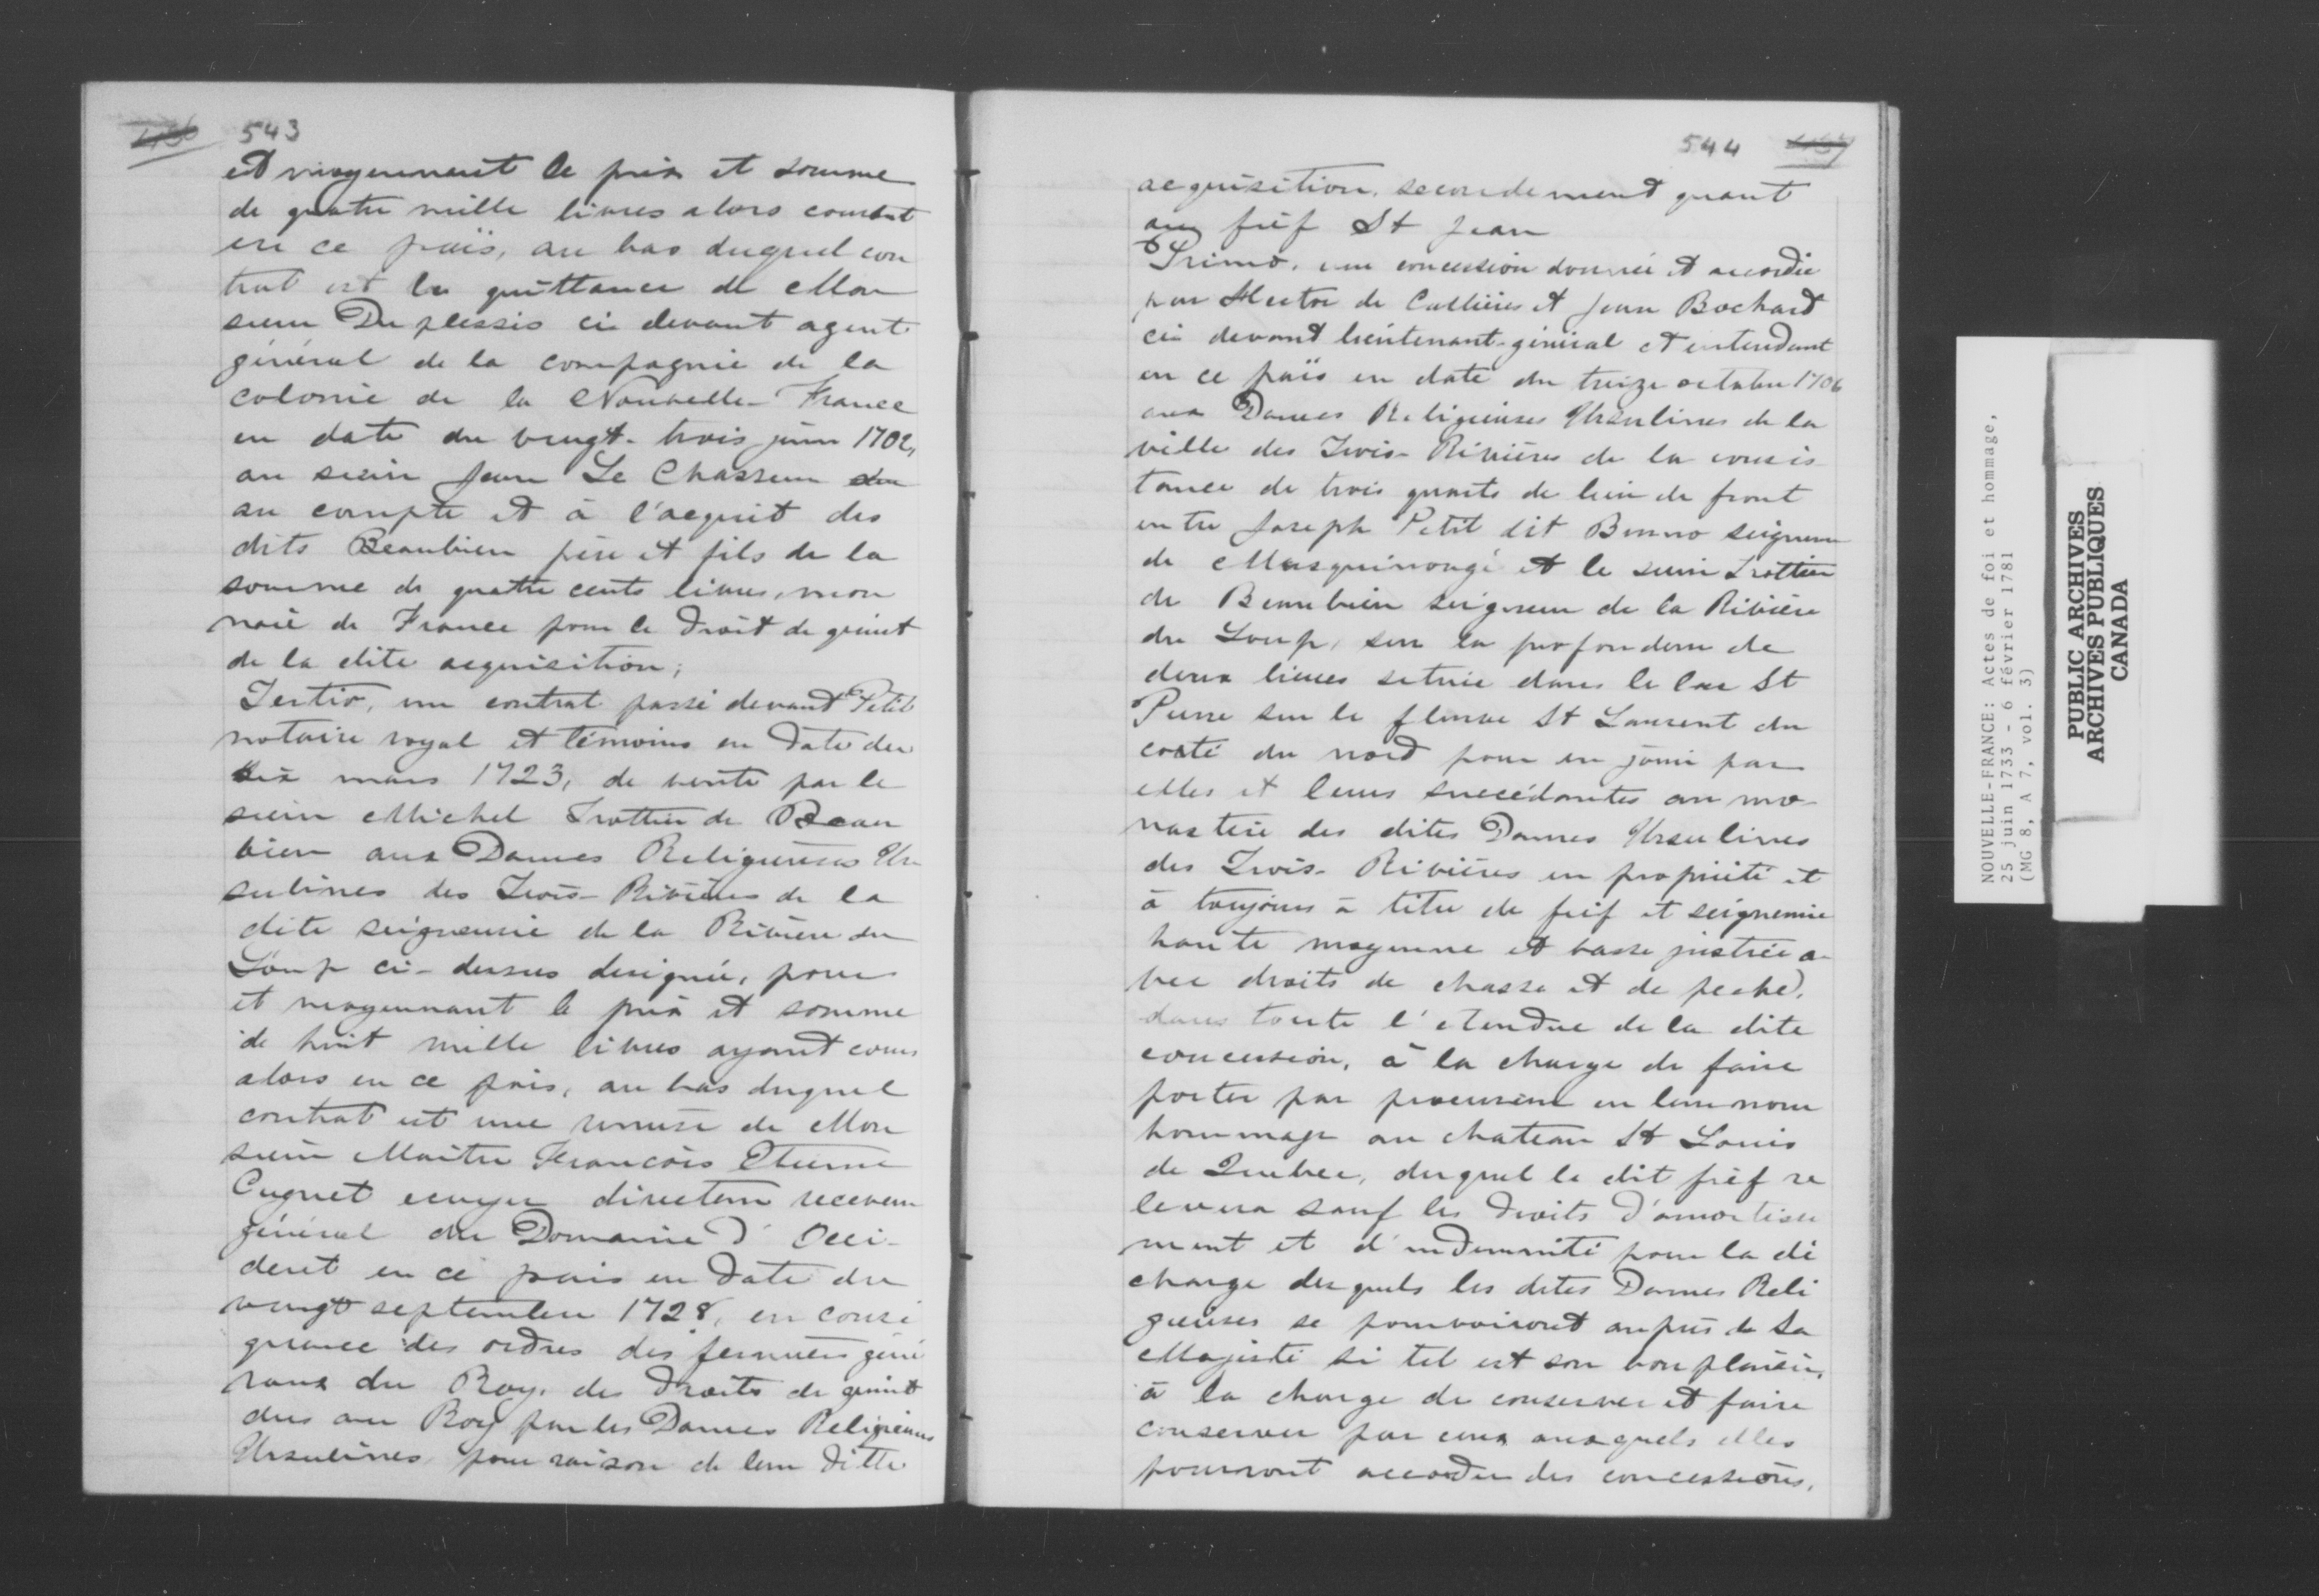 543
et moyennant le prix et somme
de quatre mille livres alors courant
en ce païs, au bas duquel con
trat est la quittance de Mon
sieur Duplessis ci devant agent
général de la compagnie de la
colonie de la Nouvelle-France
en date du vingt-trois juin 1702,
au sieur Jean Le Chasseur
au compte et à l'acquit des
dits Beaubien père et fils de la
somme de quatre cents livres, mon
naie de France pour le droit de quint
de la dite acquisition;
Tertio, un contrat passé devant Petit
notaire royal et témoins en date du
six mars 1723, de vente par le
sieur Michel Trottier de Beau
bien aux Dames Religieuses Ur
sulines des Trois-Rivières de la
dite seigneurie de la Rivière du
Loup ci-dessus designée, pour
et moyennant le prix et somme
de huit mille livres ayant cours
alors en ce païs, au bas duquel
contrat est une remise de Mon
sieur Maitre François Etienne
Cugnet ecuyer directeur receveur
général du Domaine d'Occi-
dent en ce païs en date du
vingt septembre 1728, en consé
quence des ordres des fermiers géné
raux du Roy, des droits de quint
dus au Roy par les Dames Religieuses
Ursulines pour raison de leur ditte
544
acquisition, secondement quant
au fief St Jean
Primo, une concession donnée et accordée
par Hector de Callières et Jean Bochard
ci devant lieutenant-général et intendant
en ce païs en date du treize octobre 1706
aux Dames Religieuses Ursulines de la
ville des Trois-Rivières de la consis
tance de trois quarts de lieue de front
entre Joseph Petit dit Bruno seigneur
de Masquinongé et le sieur Trottier
de Beaubien seigneur de la Rivière
du Loup, sur la profondeur de
deux lieues située dans le lac St
Pierre sur le fleuve St Laurent du
costé du nord pour en jouir par
elles et leurs succédantes au mo-
nastère des dites Dames Ursulines
des Trois-Rivières en propriété et
à toujours à titre de fief et seigneurie
haute moyenne et basse justice a-
vec droits de chasse et de peche,
dans toute l'étendue de la dite
concession, à la charge de faire
porter par procureur en leur nom
hommage au chateau St Louis
de Quebec, duquel le dit fief re
levera sauf les droits d'amortisse
ment et d'indemnité pour la dé
charge desquels les dites Dames Reli
gieuses se pourvoiront aupres de Sa
Majesté si tel est son bon plaisir,
à la charge de conserver et faire
conserver par ceux auxquels elles
pourront accorder des concessions,
NOUVELLE-FRANCE: Actes de foi et hommage,
25 juin 1733 - 6 février 1781
(MG 8, A 7, vol. 3)
PUBLIC ARCHIVES
ARCHIVES PUBLIQUES
CANADA